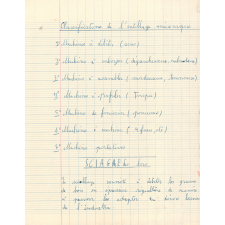 Classification de l'outillage mécanique
1° Machines à débiter (scies)
2° Machines à corroyer (dégauchisseuse, raboteuse)
3° Machines à assembler (mortaiseuse, tenonneuse)
4° Machines à profiler (Toupie)
5° Machines de finission (ponceuse)
6° Machines à
7° Machines portatives
SCIAGE du bois
Le sciage consiste à débiter les grumes
de bois en épaisseurs régulières de manière
à pouvoir les adapter aux divers besoins
de l'industrie